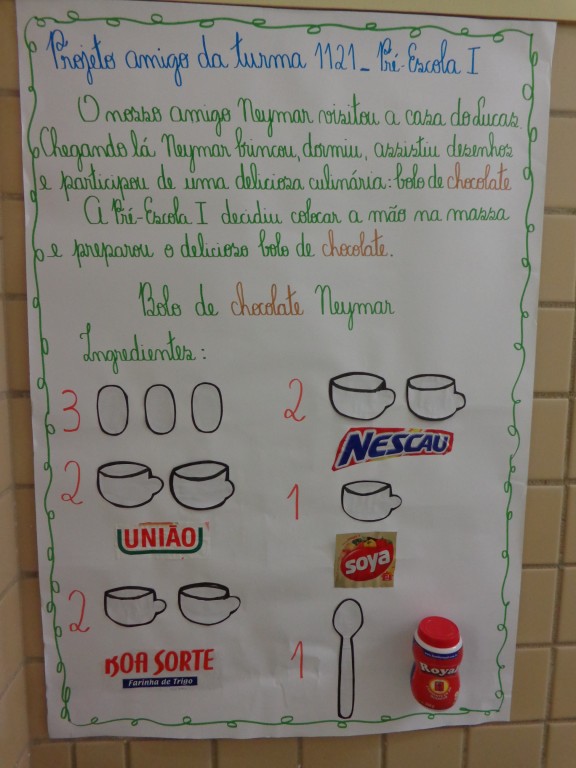 Projeto amigo da turma 1121_ Pré-Escola I
O nosso amigo Neymar visitou a casa do Lucas.
Chegando lá Neymar brincou, dormiu, assistiu desenhos
e participou de uma deliciosa culinária: bolo de chocolate
A Pré-Escola I decidiu colocar a mão na massa
e preparou o delicioso bolo de chocolate.
Bolo de chocolate Neymar
Ingredientes:
3
2
NESCAU
2
UNIÃO
1
soya
2
BOA SORTE
Farinha de Trigo
1
Royal